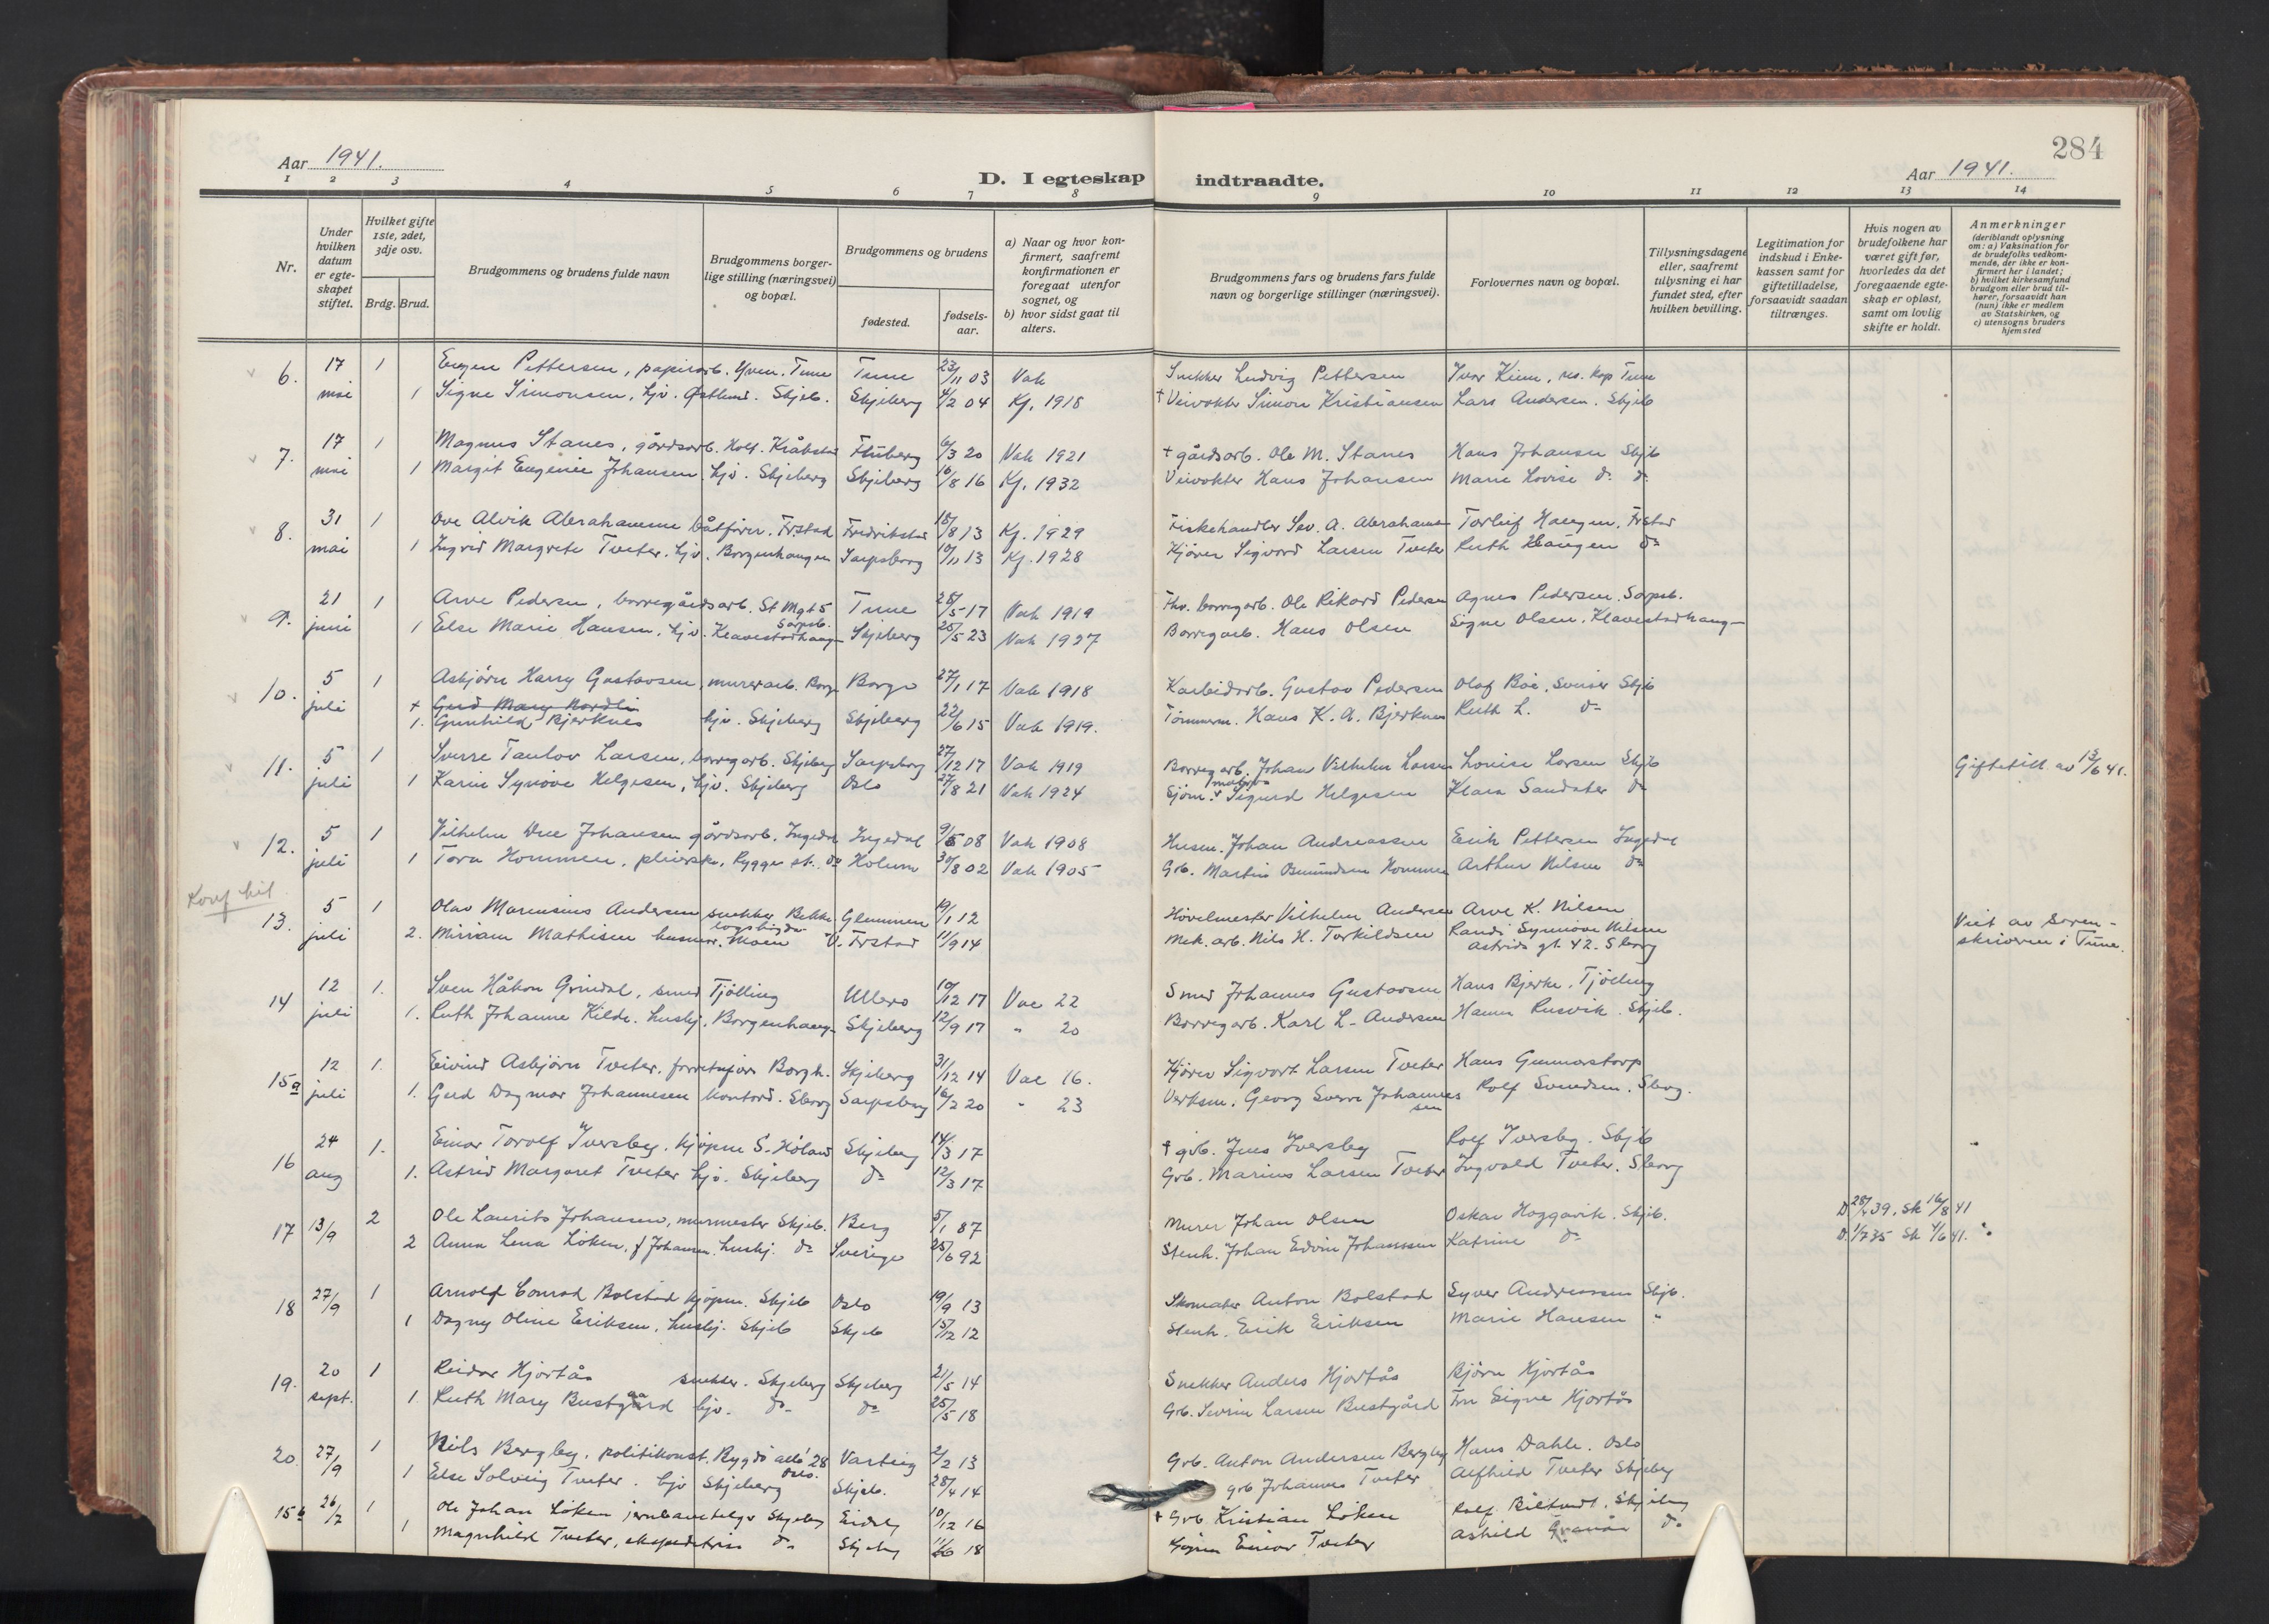 284
Aar 1941.
D. I egteskap indtraadte.
Aar 1941.
1 2 3 4 5 6 7 8 9 10 11 12 13 14
Nr.
Under hvilken datum er egteskapet stiftet.
Hvilket gifte 1ste, 2det, 3dje osv.
Brdg. Brud.
Brudgommens og brudens fulde navn
Brudgommens borgerlige stilling (næringsvei) og bopæl.
Brudgommens og brudens
fødested.
fødsels-aar.
a) Naar og hvor konfirmert, saafremt konfirmationen er foregaat utenfor sognet, og
b) hvor sidst gaat til alters.
Brudgommens fars og brudens fars fulde navn og borgerlige stillinger (næringsvei).
Forlovernes navn og bopæl.
Tillysningsdagene eller, saafremt tillysning ei har fundet sted, efter hvilken bevilling.
Legitimation for indskud i Enkekassen samt for giftetilladelse, forsaavidt saadan tiltrænges.
Hvis nogen av brudefolkene har været gift før, hvorledes da det foregaaende egteskap er opløst, samt om lovlig skifte er holdt.
Anmerkninger
(deriblandt oplysning om: a) Vaksination for de brudefolks vedkommende, der ikke er konfirmert her i landet; b) hvilket kirkesamfund brudgom eller brud tilhører, forsaavidt han (hun) ikke er medlem av Statskirken, og c) utensogns bruders hjemsted
6. 17 1 Eugen Pettersen, papirarb. Yven. Tune Tune 23/11 03 Vak Snekker Ludvig Pettersen Ivar Kiem, res. kap Tune
mai 1 Signe Simonsen, hjv. Østlund. Skjeb. Skjeberg 4/2 04 Kf. 1918 † Veivokter Simon Kristiansen Lars Andersen. Skjeb
7. 17 1 Magnus Stanes, gårdsarb. Holt. Kråkstad 6/3 20 Vak 1921 † gårdsarb. Ole M. Stanes Hans Johansen Skjeb
mai 1 Margit Eugenie Johansen hjv. Skjeberg Skjeberg 16/8 16 Kf. 1932 Veivokter Hans Johansen Marie Lovise do do
8. 31 1 Ove Alvik Abrahamsen båtfører. Frstad Fredrikstad 18/8 13 Kf. 1929 Fiskehandler Sev. A. Abrahamsen Torleif Haugen. Frstad
mai 1 Ingrid Margrete Tveter. hjv. Borgenhaugen Sarpsborg 10/11 13 Kf. 1928 Kjører Sigvard Larsen Tveter Ruth Haugen do
9. 21 1 Arve Pedersen, borregårdsarb. St Mgt 5 Sarpsb. Tune 28/5 17 Vak 1919 Fhv. borregarb. Ole Rikard Pedersen Agnes Pedersen. Sarpsb.
juni 1 Else Marie Hansen. hjv. Klavestadhaug Skjeberg 25/5 23 Vak 1927 Borregarb. Hans Olsen Signe Olsen. Klavestadhaug
10. 5 1 Asbjørn Harry Gustavsen, murerarb. Borge Borge 27/1 17 Vak 1918 Karbidarb. Gustav Pedersen Olaf Boe, Skjeb
juli + Gerd Mary Nordli
1. Gunhild Bjerknes hjv. Skjeberg Skjeberg 22/6 15 Vak 1919. Tømmerm. Hans K. A. Bjerknes Ruth L. do
11. 5 1 Sverre Tanlov Larsen, borregarb. Skjeberg Sarpsborg 27/12 17 Vak 1919 Borregarb. Johan Vilhelm Larsen Louise Larsen Skjeb Giftetill. av 13/6 41.
juli 1 Karin Synøve Helgesen, hjv. Skjeberg Oslo 27/8 21 Vak 1924 Sjøm. Sigurd Helgesen Klara Sandater do
12. 5 1 Vilhelm Due Johansen gårdsarb. Ingedal Ingedal 9/6 08 Vak 1908 Husm. Johan Andreassen Erik Pettersen Ingedal
juli 1 Tora Hommen, pleierske, Rygge st. do Holum 30/8 02 Vak 1905 Grb. Martin Osmundsen Hommen Arthur Nilsen do
Konf hit
13. 5 1 Olav Marensius Andersen snekker Bekke- Glemmen 19/1 12 Høvelmester Vilhelm Andersen Arve K. Nilsen Viet av Soren-
juli 2. Mirriam Mathisen husmor. Moen V. Frstad 11/9 14 Mek. arb. Nils H. Torkildsen Randi Synnøve Nilsen skriveren i Tune.
Astrids gt. 42. Sborg
14 12 1. Sven Håkon Grindal, smed Tjølling Ullerø 10/12 17 Vac 22 Smed Johannes Gustavsen Hans Bjerke. Tjølling
juli 1. Ruth Johanne Kilde. hushj. Borgenhaug Skjeberg 12/9 17 " 20 Borregarb. Karl L. Andersen Hanna Rusvik. Skjeb.
15a 12 1. Eivind Asbjørn Tveter. forretnfører Borgh. Skjeberg 31/12 14 Vac 16. Kjører Sigvart Larsen Tveter Hans Gunnarstorp
juli 1. Gerd Dagmar Johannesen kontord. Sborg Sarpsborg 16/2 20 - 23 Verksm. Georg Sverre Johannessen Rolf Svendsen. Sborg.
16 24 1. Einar Torolf Iversby. kjøpm S. Høland Skjeberg 14/3 17 † grb. Jens Iversby Rolf Iversby. Skjeb
aug 1. Astrid Margaret Tveter hjv. Skjeberg do 12/3 17 Grb. Marius Larsen Tveter Ingvald Tveter. Sborg
17 13/9 2 Ole Laurits Johansen, murmester Skjeb. Berg 5/1 87 Murer Johan Olsen Oskar Hoggavik. Skjeb. D 28/4 39. Sk 16/8 41
2 Anna Lena Løken, f. Johansen. hushj. do Sverige 25/6 92 Stenh. Johan Edvin Johanssen Katrine do D. 1/7 35 Sk 4/6 41.
18 27/9 1 Arnolf Conrad Bolstad kjøpm. Skjeb Oslo 19/9 13 Skomaker Anton Bolstad Syver Andreassen Skjb.
1 Dagny Oline Eriksen, hushj. Skjeb Skjeb 15/12 12 Stenh. Erik Eriksen Marie Hansen "
19. 20 1 Reidar Hjortås snekker. Skjeberg Skjeberg 21/5 14 Snekker Anders Hjortås Bjørn Hjortås
sept. 1 Ruth Mary Bustgaard hjv. do do 25/5 18 Grb. Severin Larsen Bustgård Fru Signe Hjortås
20. 27/9 1 Nils Bergby. politikonst. Bygdø allé 28 Oslo. Varteig 2/2 13 Grb. Anton Andersen Bergby Hans Dahle. Oslo
1 Else Solveig Tveter. hjv Skjeberg Skjeb. 28/4 14 grb Johannes Tveter Alfhild Tveter Skjeberg
15b 26/7 1 Ole Johan Løken jernbanetelegr Skjeberg Eidsb 10/12 16 † Grb. Kristian Løken Rolf Skjeberg
1 Magnhild Tveter, ekspeditrise do Skjeberg 11/6 18 Einar Tveter Ashild Granås do